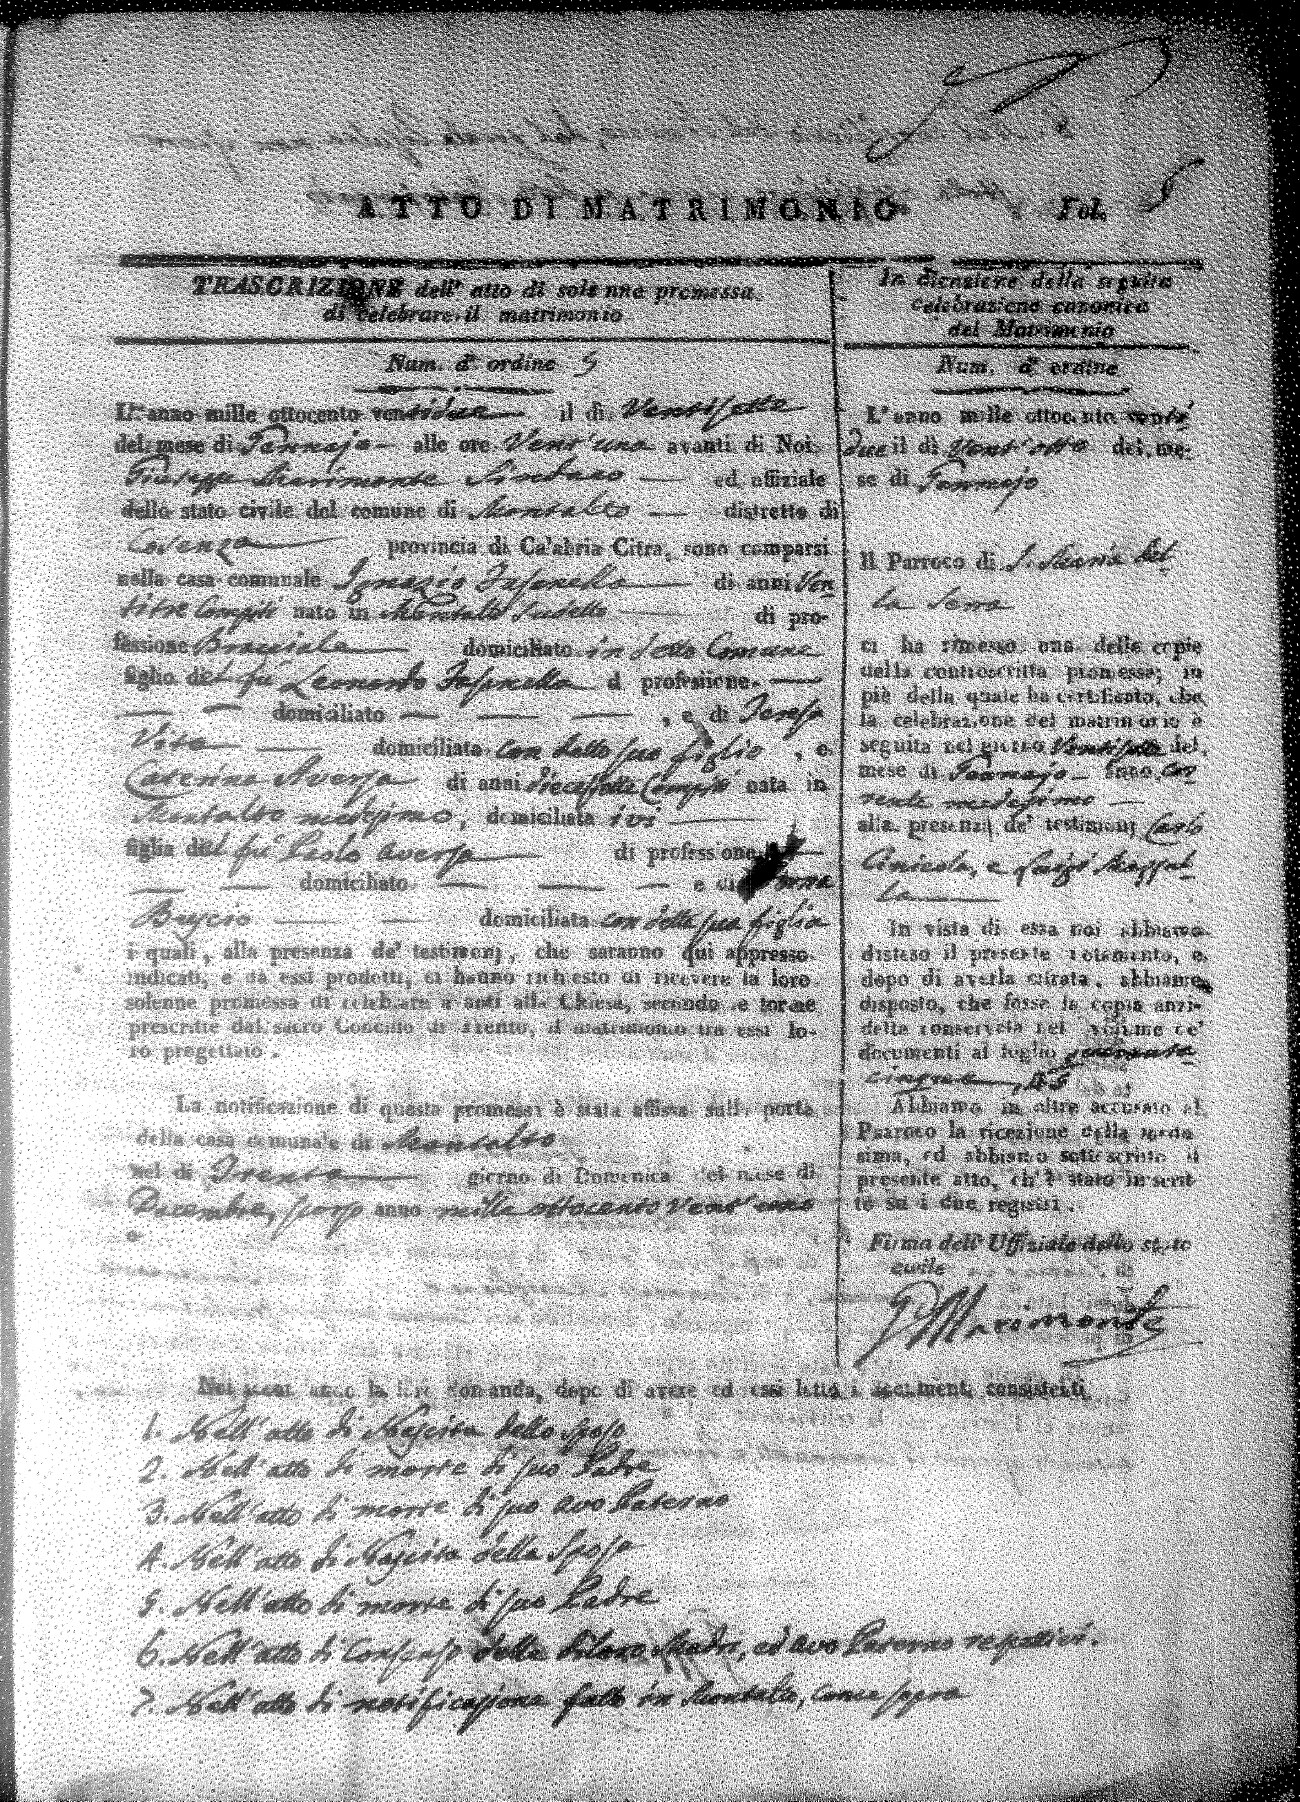 ATTO DI MATRIMONIO Fol. 5
TRASCRIZIONE dell' atto di solenne promessa
di celebrare il matrimonio
Num. d' ordine 5
L' anno mille ottocento ventidue il dì Ventisette
del mese di Gennajo alle ore Vent'una avanti di Noi
Giuseppe Marimonte Sindaco ed uffiziale
dello stato civile del comune di Montalto distretto di
Cosenza provincia di Calabria Citra, sono comparsi
nella casa comunale Ignazio di anni Ven
titre Compiti nato in Montalto sudetto di pro-
fessione Bracciale domiciliato in detto Comune
figlio del fu Leonardo di professione
domiciliato , e di Teresa
Vite domiciliata con detto suo figlio , e
Caterina Aversa di anni diecisette Compiti nata in
Montalto medesimo, domiciliata ivi
figlia del fu Paolo Aversa di professione
domiciliato e di
domiciliata con detta sua figlia
i quali, alla presenza de' testimonj, che saranno qui appresso
indicati, e da essi prodotti, ci hanno richiesto di ricevere la loro
solenne promessa di celebrare avanti alla Chiesa, secondo le forme
prescritte dal sacro Concilio di Trento, il matrimonio tra essi lo-
ro progettato .
La notificazione di questa promessa è stata affissa sulla porta
della casa comunale di Montalto
nel dì Trenta giorno di Domenica del mese di
Decembre, scorso anno mille ottocento vent'uno
e
In dicazione della seguita
celebrazione canonica
del Matrimonio
Num. d' ordine
L' anno mille ottocento venti
due il dì Vent'otto del me-
se di Gennajo
Il Parroco di S. Maria del
la Serra
ci ha rimesso una delle copie
della controscritta promessa; in
piè della quale ha certificato, che
la celebrazione del matrimonio è
seguita nel giorno Ventisette del
mese di Gennajo anno cor
rente medesimo
alla presenza de' testimonj Carlo
Anicola, e Luigi Mazzul
la
In vista di essa noi abbiamo
disteso il presente notamento, e
dopo di averla cifrata, abbiamo
disposto, che fosse la copia anzi-
detta conservata nel volume de'
documenti al foglio quaranta
cinque, 45
Abbiamo in oltre accusato al
Parroco la ricezione della mede
sima, ed abbiamo sottoscritto il
presente atto, ch' è stato inscrit
to su i due registri .
Firma dell' Uffiziale dello stato
civile
G. Marimonte
Noi secondando la loro domanda, dopo di avere ad essi letto i documenti consistenti
1. Nell'atto di Nascita dello sposo
2. Nell'atto di morte di suo Padre
3. Nell'atto di morte di suo avo Paterno
4. Nell'atto di Nascita della Sposa
5. Nell'atto di morte di suo Padre
6. Nell'atto di Consenso delle di loro Madri, ed avo Paterno
7. Nell'atto di notificazione fatto in Montalto, come sopra